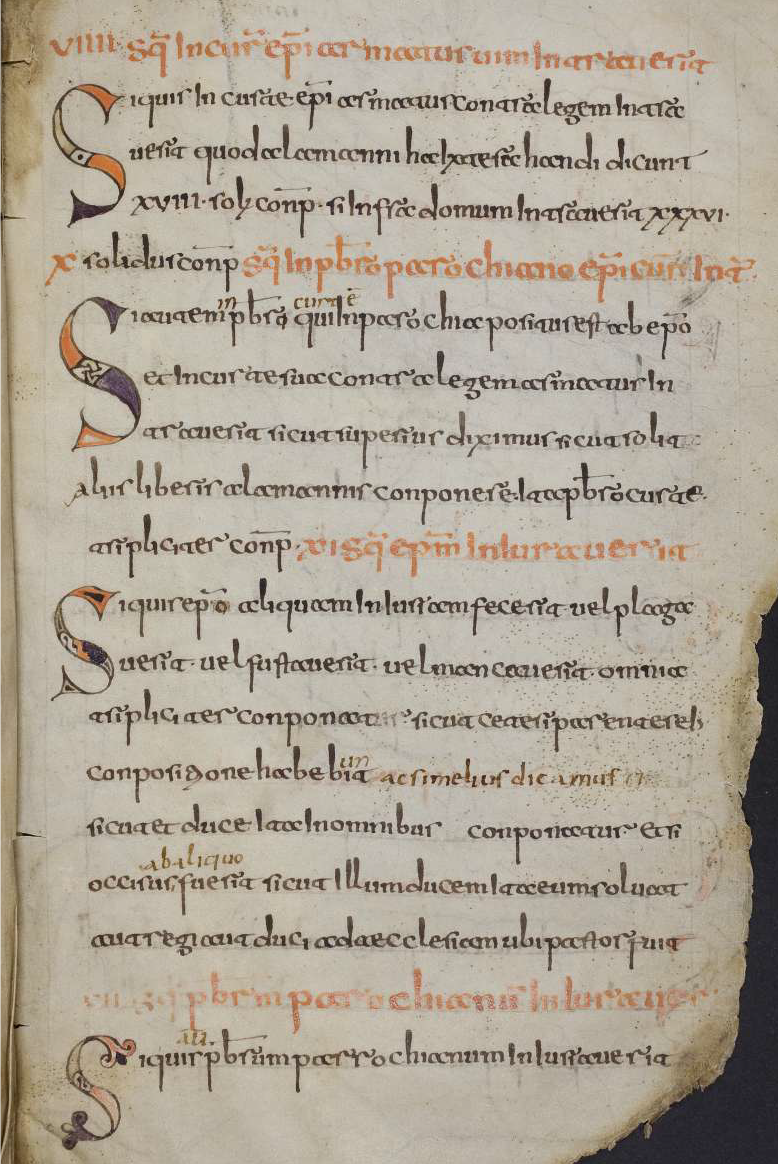 VIIII. Sq̄ In cur̄ ep̄i armatus um Intrauerit
Siquis In curte ep̄i armatus contra legem Intra
uerit quod alamanni haistera handi dicunt
XVIII. sol conp̄. si Infra domum Intrauerit XXXVI.
X solidus conp̄ Sq̄ In pb̄ro parrochiano ep̄i cur̄ Int̄
Si autem in pb̄ro qui In curte ē parrochia positus est ab ep̄o
et In curte sua contra legem armatus In
trauerit sicut superius diximus sicut solit
alius liberis alamannis conponere. Ita pb̄ro curte.
tripliciter conp̄. XI Sq̄ ep̄m Iniurauerit
Siquis ep̄o aliquam Iniuriam fecerit uel plaga
uerit. uel fustauerit. uel mancauerit. omnia
tripliciter conponat sicut ceteri parentes eius
conpositione habebunt ac simelius dicamus
sicut et duce Ita In omnibus conponatur et si
occisus ab aliquo fuerit sicut Illum ducem Ita eum soluat
aut regi aut duci aut ad aecclesiam ubi pastor fuit
Sq̄ pb̄rm parrochianū Iniurauer
Siquis pb̄rum parrochianum Iniurauerit